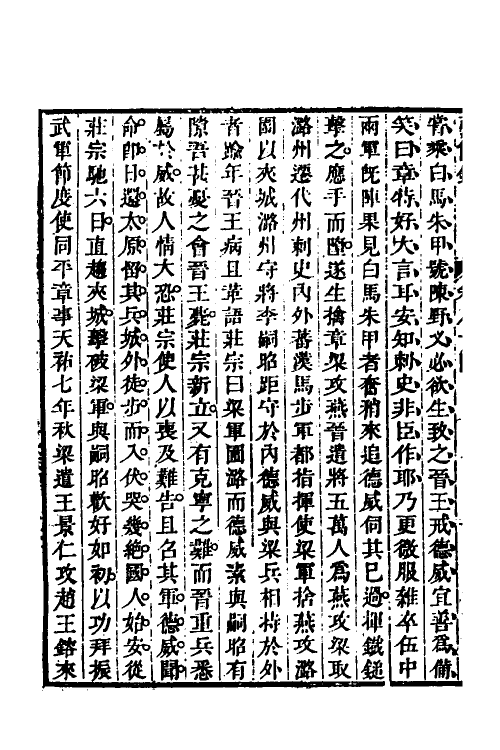 常乘白馬朱甲號陳野义必欲生致之晉王戒德威宜善爲備
笑曰章特好大言耳安知刺史非臣作耶乃更微服雜卒伍中
兩軍旣陣果見白馬朱甲者奮矟來追德威伺其已過揮鐵鎚
擊之應手而墮遂生擒章梁攻燕晉遣將五萬人爲燕攻梁取
潞州遷代州刺史内外蕃漢馬步軍都指揮使梁軍捨燕攻潞
圍以夾城潞州守將李嗣昭距守於内德威與梁兵相持於外
者踰年晉王病且革語莊宗曰梁軍圍潞而德威素與嗣昭有
隙吾甚憂之會晉王薨莊宗新立又有克寧之難而晉重兵悉
屬於威故人情大恐莊宗使人以喪及難告且召其軍德威聞
命即日還太原留其兵城外徒步而入伏哭幾絶國人始安從
莊宗馳六日直趨夾城擊破梁軍與嗣昭歡好如初以功拜振
武軍節度使同平章事天祐七年秋梁遣王景仁攻趙王鎔來